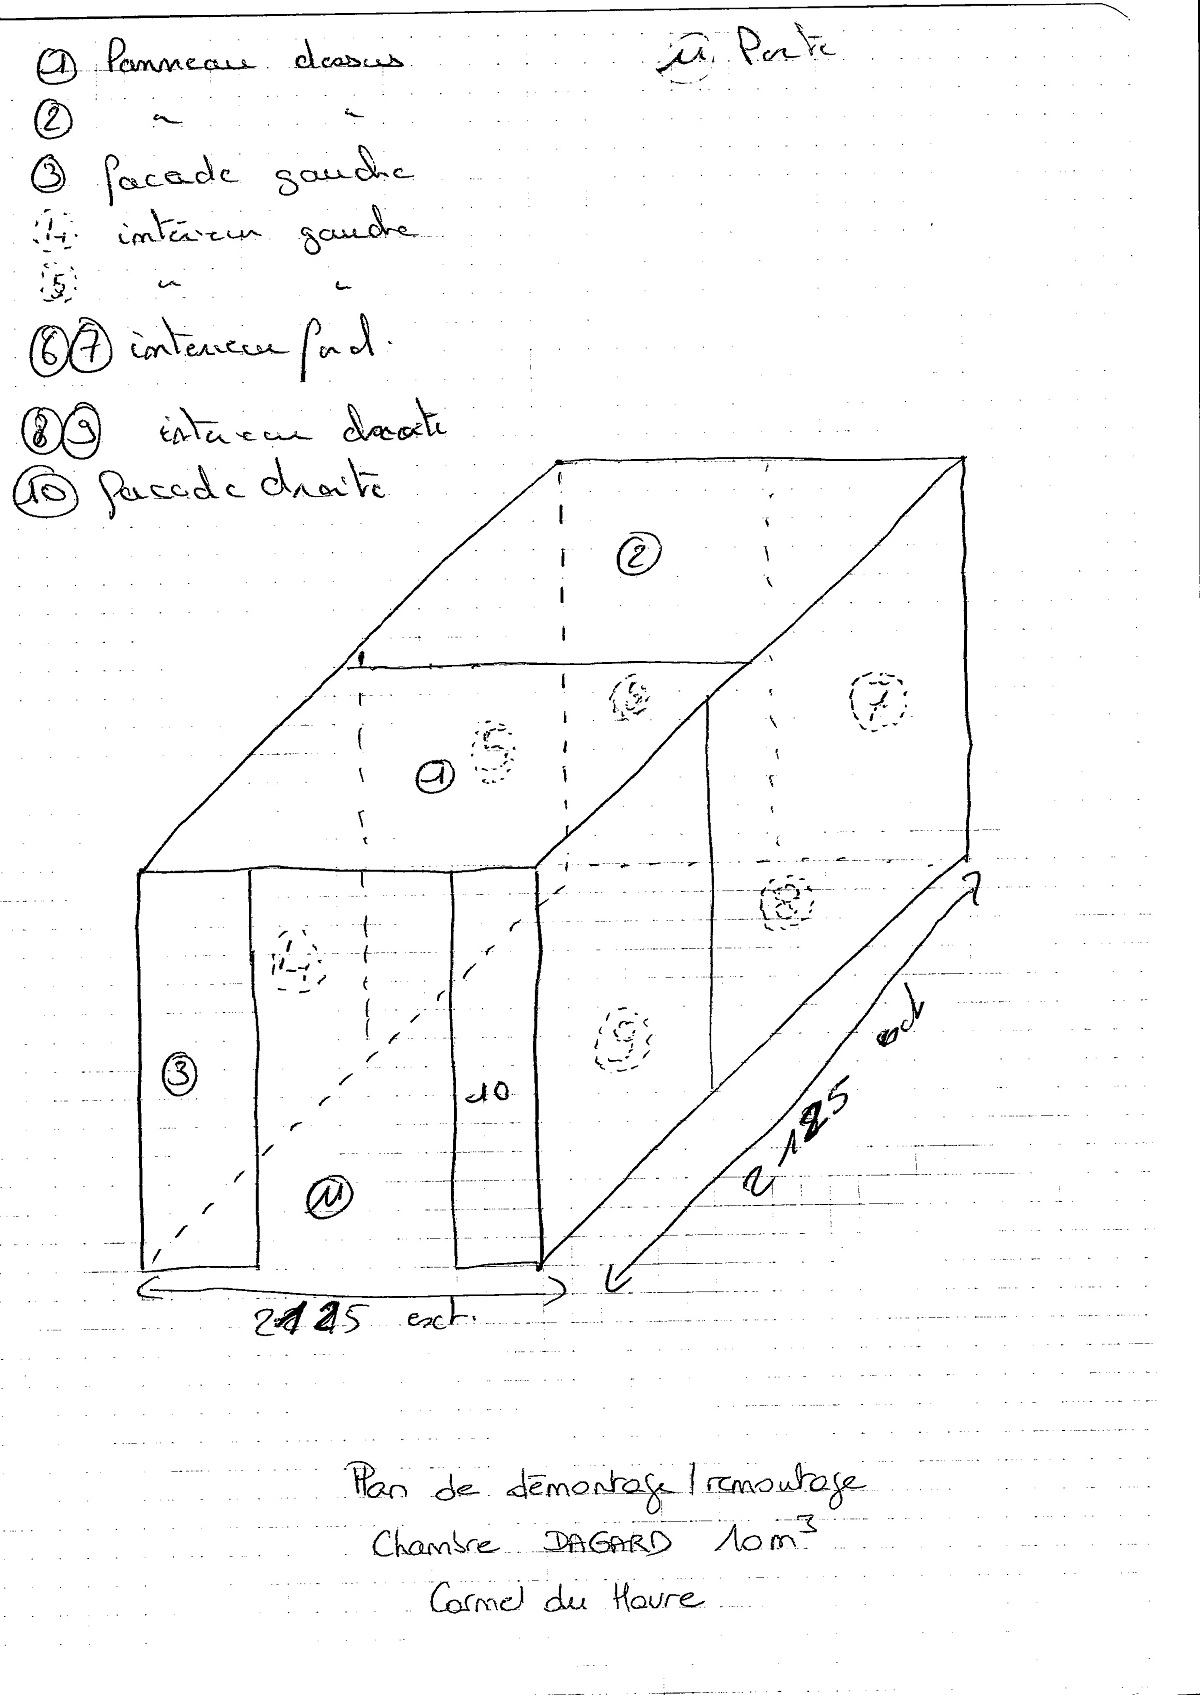 ① Panneau dessus
② " "
③ facade gauche
④ intérieur gauche
⑤ " "
⑥⑦ interieur fond.
⑧⑨ intérieur droite
⑩ facade droite
⑪ Porte
②
⑥
⑦
⑤
①
⑧
④
⑨
③
10
⑪
2125 ext.
Plan de démontage / remontage
Chambre DAGARD 10 m³
Carmel du Havre